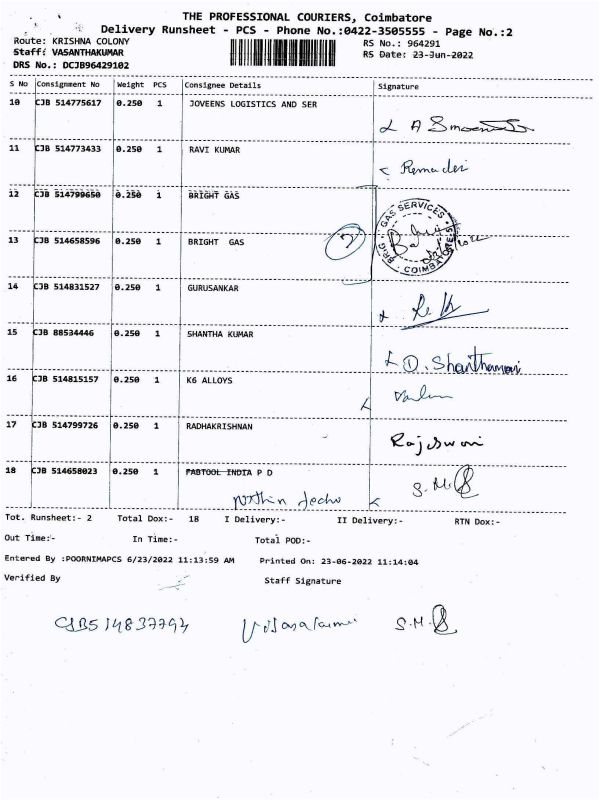 THE PROFESSIONAL COURIERS, Coimbatore
Delivery Runsheet - PCS - Phone No.:0422-3505555 - Page No.:2
Route: KRISHNA COLONY RS No.: 964291
Staff: VASANTHAKUMAR RS Date: 23-Jun-2022
DRS No.: DCJB96429102
S No Consignment No Weight PCS Consignee Details Signature
10 CJB 514775617 0.250 1 JOVEENS LOGISTICS AND SER
11 CJB 514773433 0.250 1 RAVI KUMAR
12 CJB 514799650 0.250 1 BRIGHT GAS
GAS SERVICES
13 CJB 514658596 0.250 1 BRIGHT GAS
COIMBATORE
14 CJB 514831527 0.250 1 GURUSANKAR
15 CJB 88534446 0.250 1 SHANTHA KUMAR
16 CJB 514815157 0.250 1 K6 ALLOYS
17 CJB 514799726 0.250 1 RADHAKRISHNAN
Rajeswari
18 CJB 514658023 0.250 1 FABTOOL INDIA P D
S.M
Tot. Runsheet:- 2 Total Dox:- 18 I Delivery:- II Delivery:- RTN Dox:-
Out Time:- In Time:- Total POD:-
Entered By :POORNIMAPCS 6/23/2022 11:13:59 AM Printed On: 23-06-2022 11:14:04
Verified By Staff Signature
CJB514837794 S.M